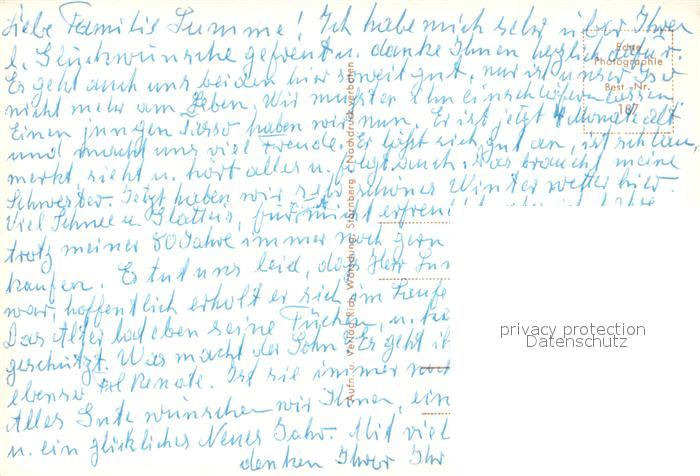 Liebe Familie Summe! Ich habe mich sehr über Ihren
l. Glückwunsche gefreut u. danke Ihnen herzlich dafür.
Es geht auch uns beiden hier soweit gut, nur ist unser
nicht mehr am Leben. Wir mussten ihn einschläfern lassen.
Einen jungen Tasso haben wir nun. Er ist jetzt 4 Monate alt
und macht uns viel Freude. Er lässt sich gut an, ist schlau,
merkt sieht u. hört alles u. folgt auch. Das braucht meine
Schwester. Jetzt haben wir sehr schönes Winterwetter hier.
Viel Schnee u. Glatteis, für mich
trotz meiner 80 Jahre immer noch gern
kaufen. Es tut uns leid, dass Herr
war, hoffentlich erholt er sich im Laufe
Das Alter hat eben seine Tücken, u.
geschützt. Was macht der Sohn? Es geht
ebenso Renate. Ist sie immer noch
Alles Gute wünschen wir Ihnen, ein
u. ein glückliches Neues Jahr. Mit viel
denken Ihrer Ihr
Echte
Photographie
Best.-Nr.
187
Aufn. u. Verlag: Rud. Wörsdung, Starnberg · Nachdruck verboten
privacy protection
Datenschutz